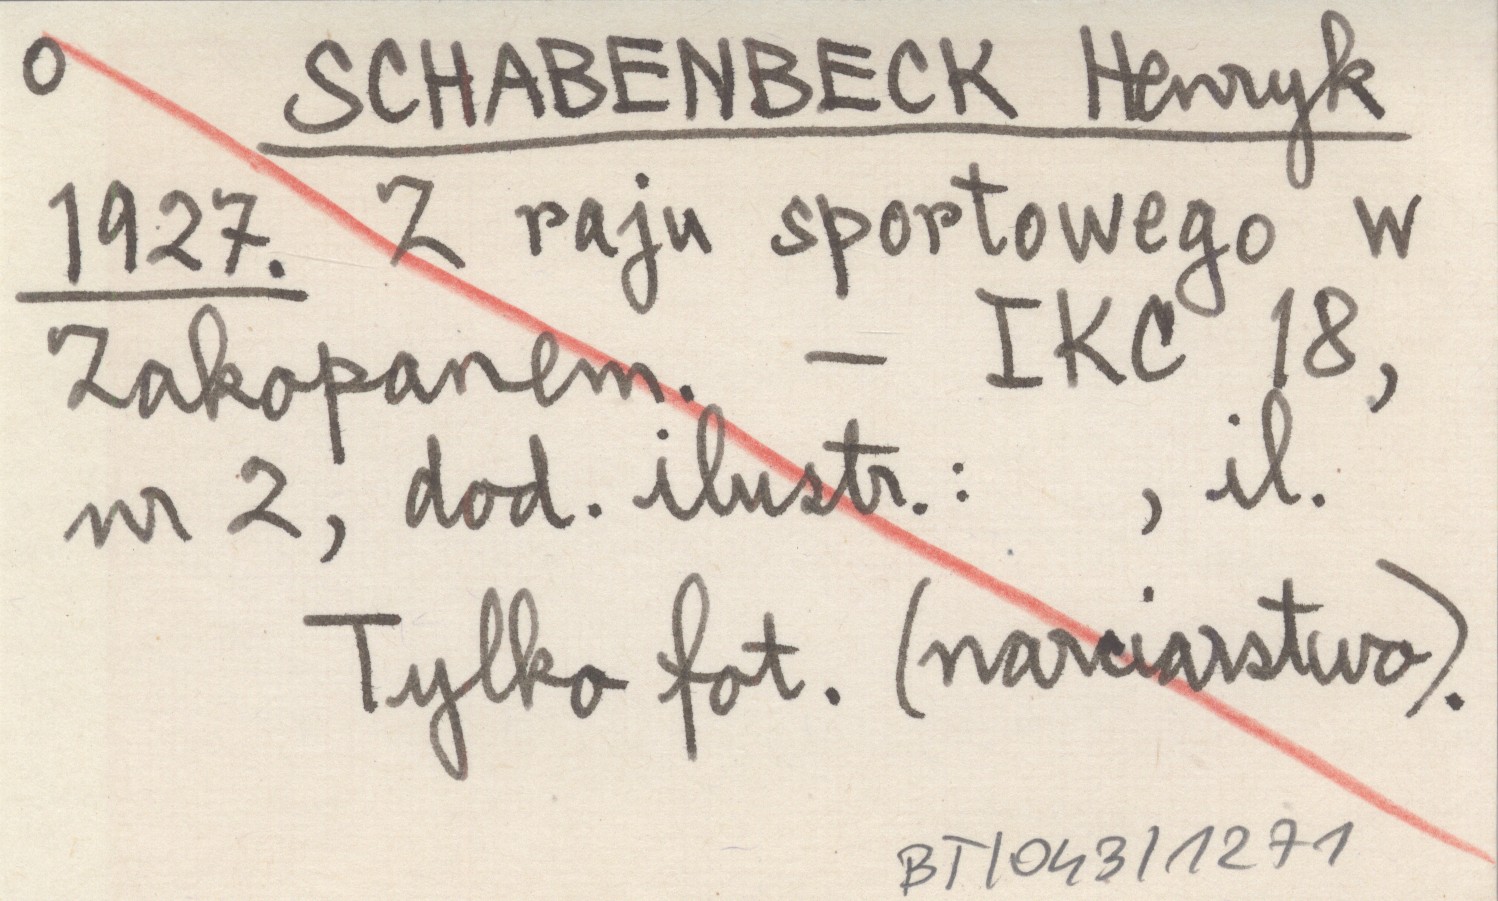 o SCHABENBECK Henryk
1927. Z raju sportowego w
Zakopanem. — IKC 18,
nr 2, dod. ilustr.: , il.
Tylko fot. (narciarstwo).
BT/043/1271